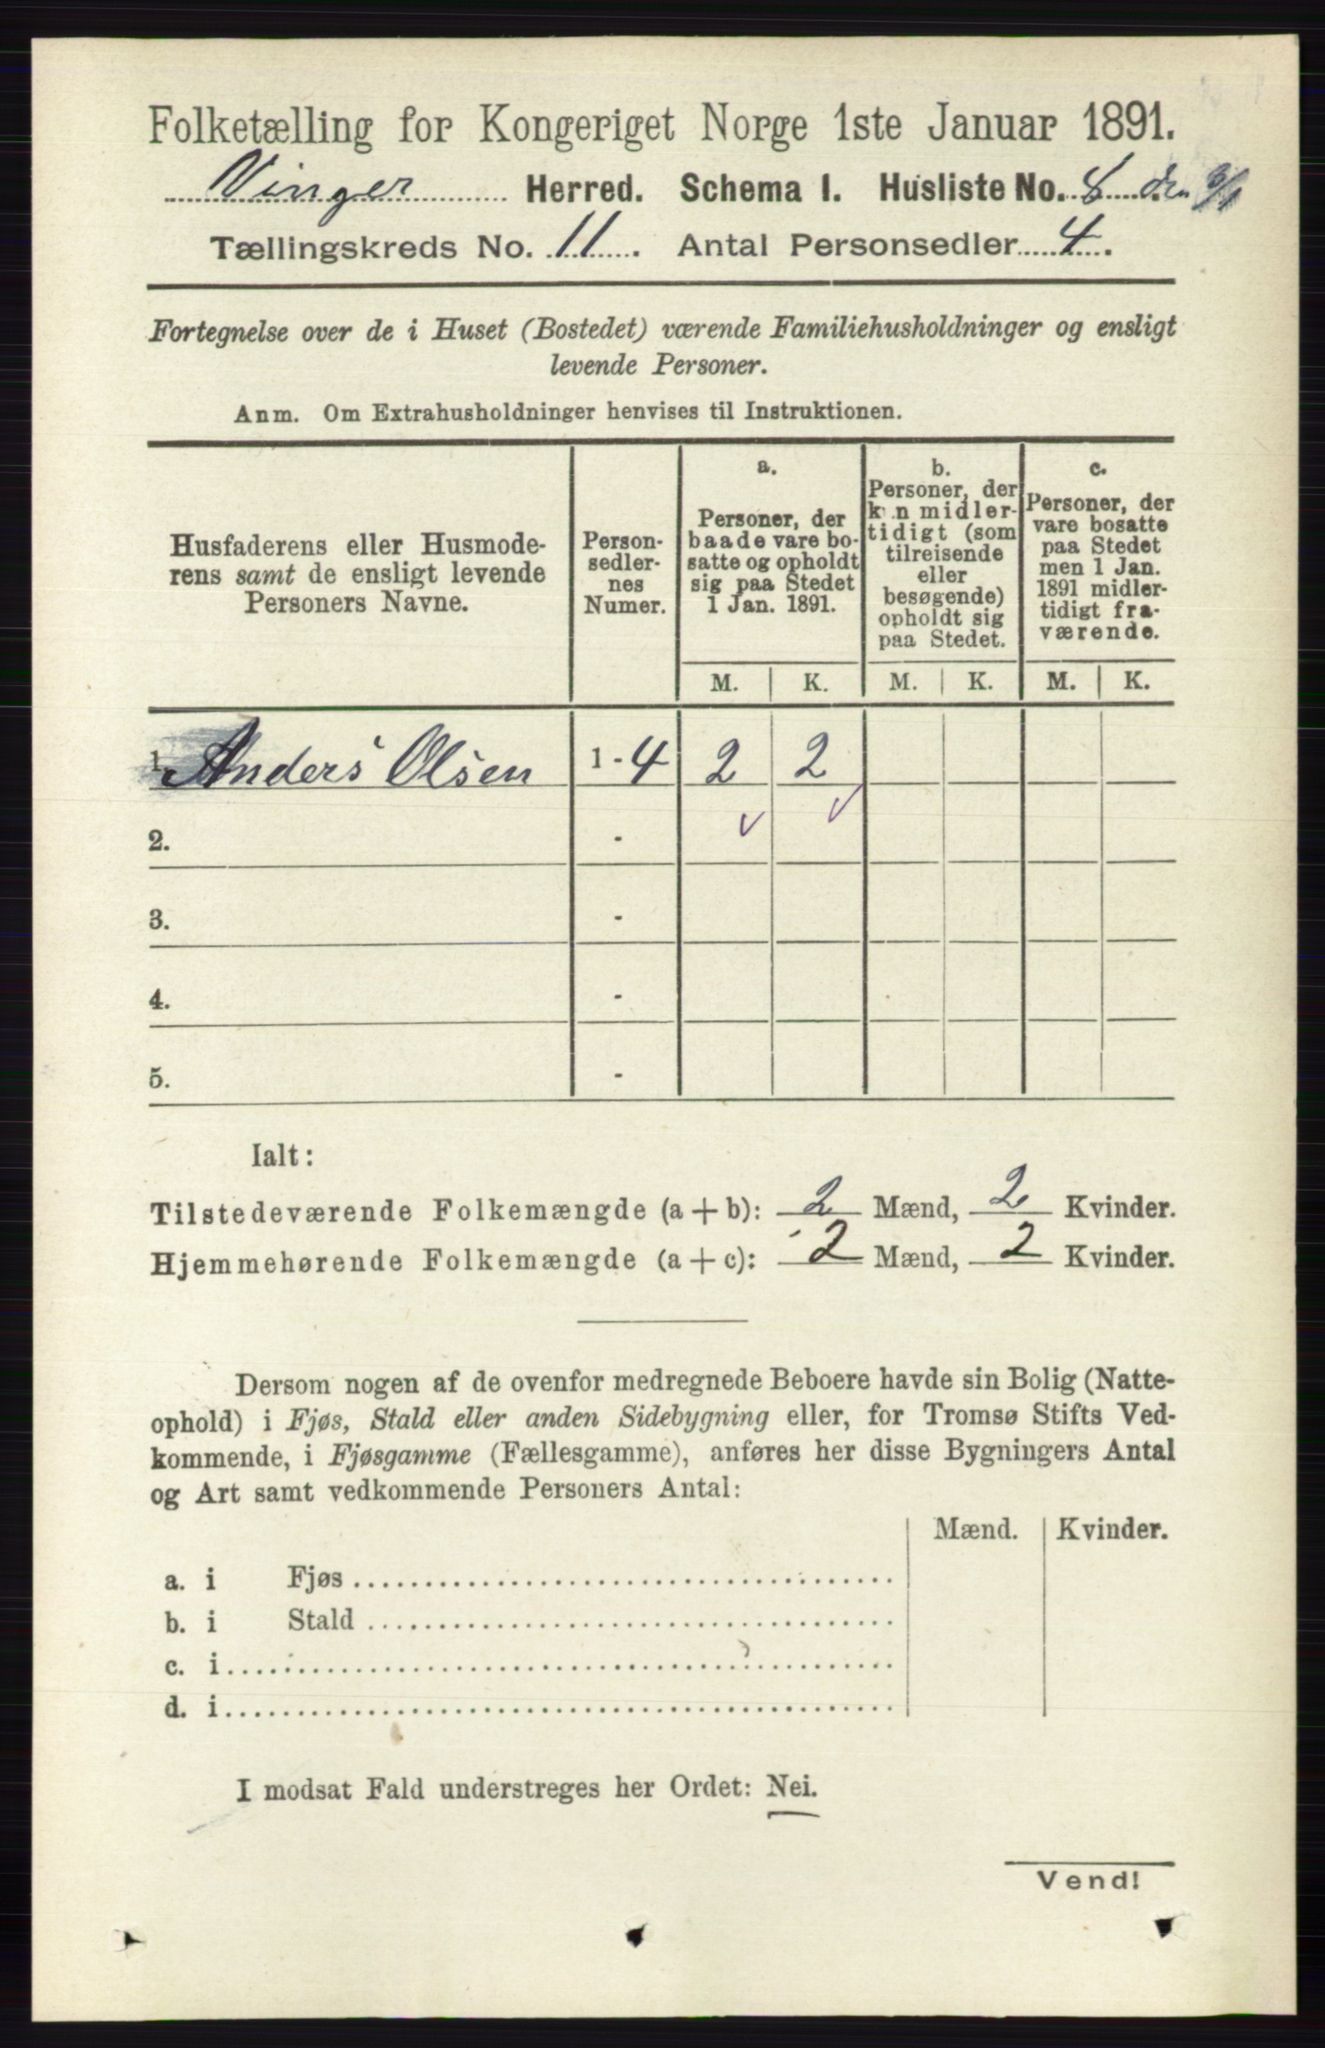 Folketælling for Kongeriget Norge 1ste Januar 1891.
Vinger Herred. Schema 1. Husliste No. 8 den 3/1
Tællingskreds No. 11. Antal Personsedler 4.
Fortegnelse over de i Huset (Bostedet) værende Familiehusholdninger og ensligt
levende Personer.
Anm. Om Extrahusholdninger henvises til Instruktionen.
Husfaderens eller Husmode-
rens samt de ensligt levende
Personers Navne.
Person-
sedler-
nes
Numer.
a.
Personer, der
baade vare bo-
satte og opholdt
sig paa Stedet
1 Jan. 1891.
b.
Personer, der
kun midler-
tidigt (som
tilreisende
eller
besøgende)
opholdt sig
paa Stedet.
c.
Personer, der
vare bosatte
paa Stedet
men 1 Jan.
1891 midler-
tidigt fra-
værende.
M. K. M. K. M. K.
1. Anders Olsen 1 - 4 2 2
2. -
3. -
4. -
5. -
Ialt:
Tilstedeværende Folkemængde (a + b): 2 Mænd, 2 Kvinder.
Hjemmehørende Folkemængde (a + c): 2 Mænd, 2 Kvinder.
Dersom nogen af de ovenfor medregnede Beboere havde sin Bolig (Natte-
ophold) i Fjøs, Stald eller anden Sidebygning eller, for Tromsø Stifts Ved-
kommende, i Fjøsgamme (Fællesgamme), anføres her disse Bygningers Antal
og Art samt vedkommende Personers Antal:
Mænd. Kvinder.
a. i Fjøs
b. i Stald
c. i
d. i
I modsat Fald understreges her Ordet: Nei.
Vend!